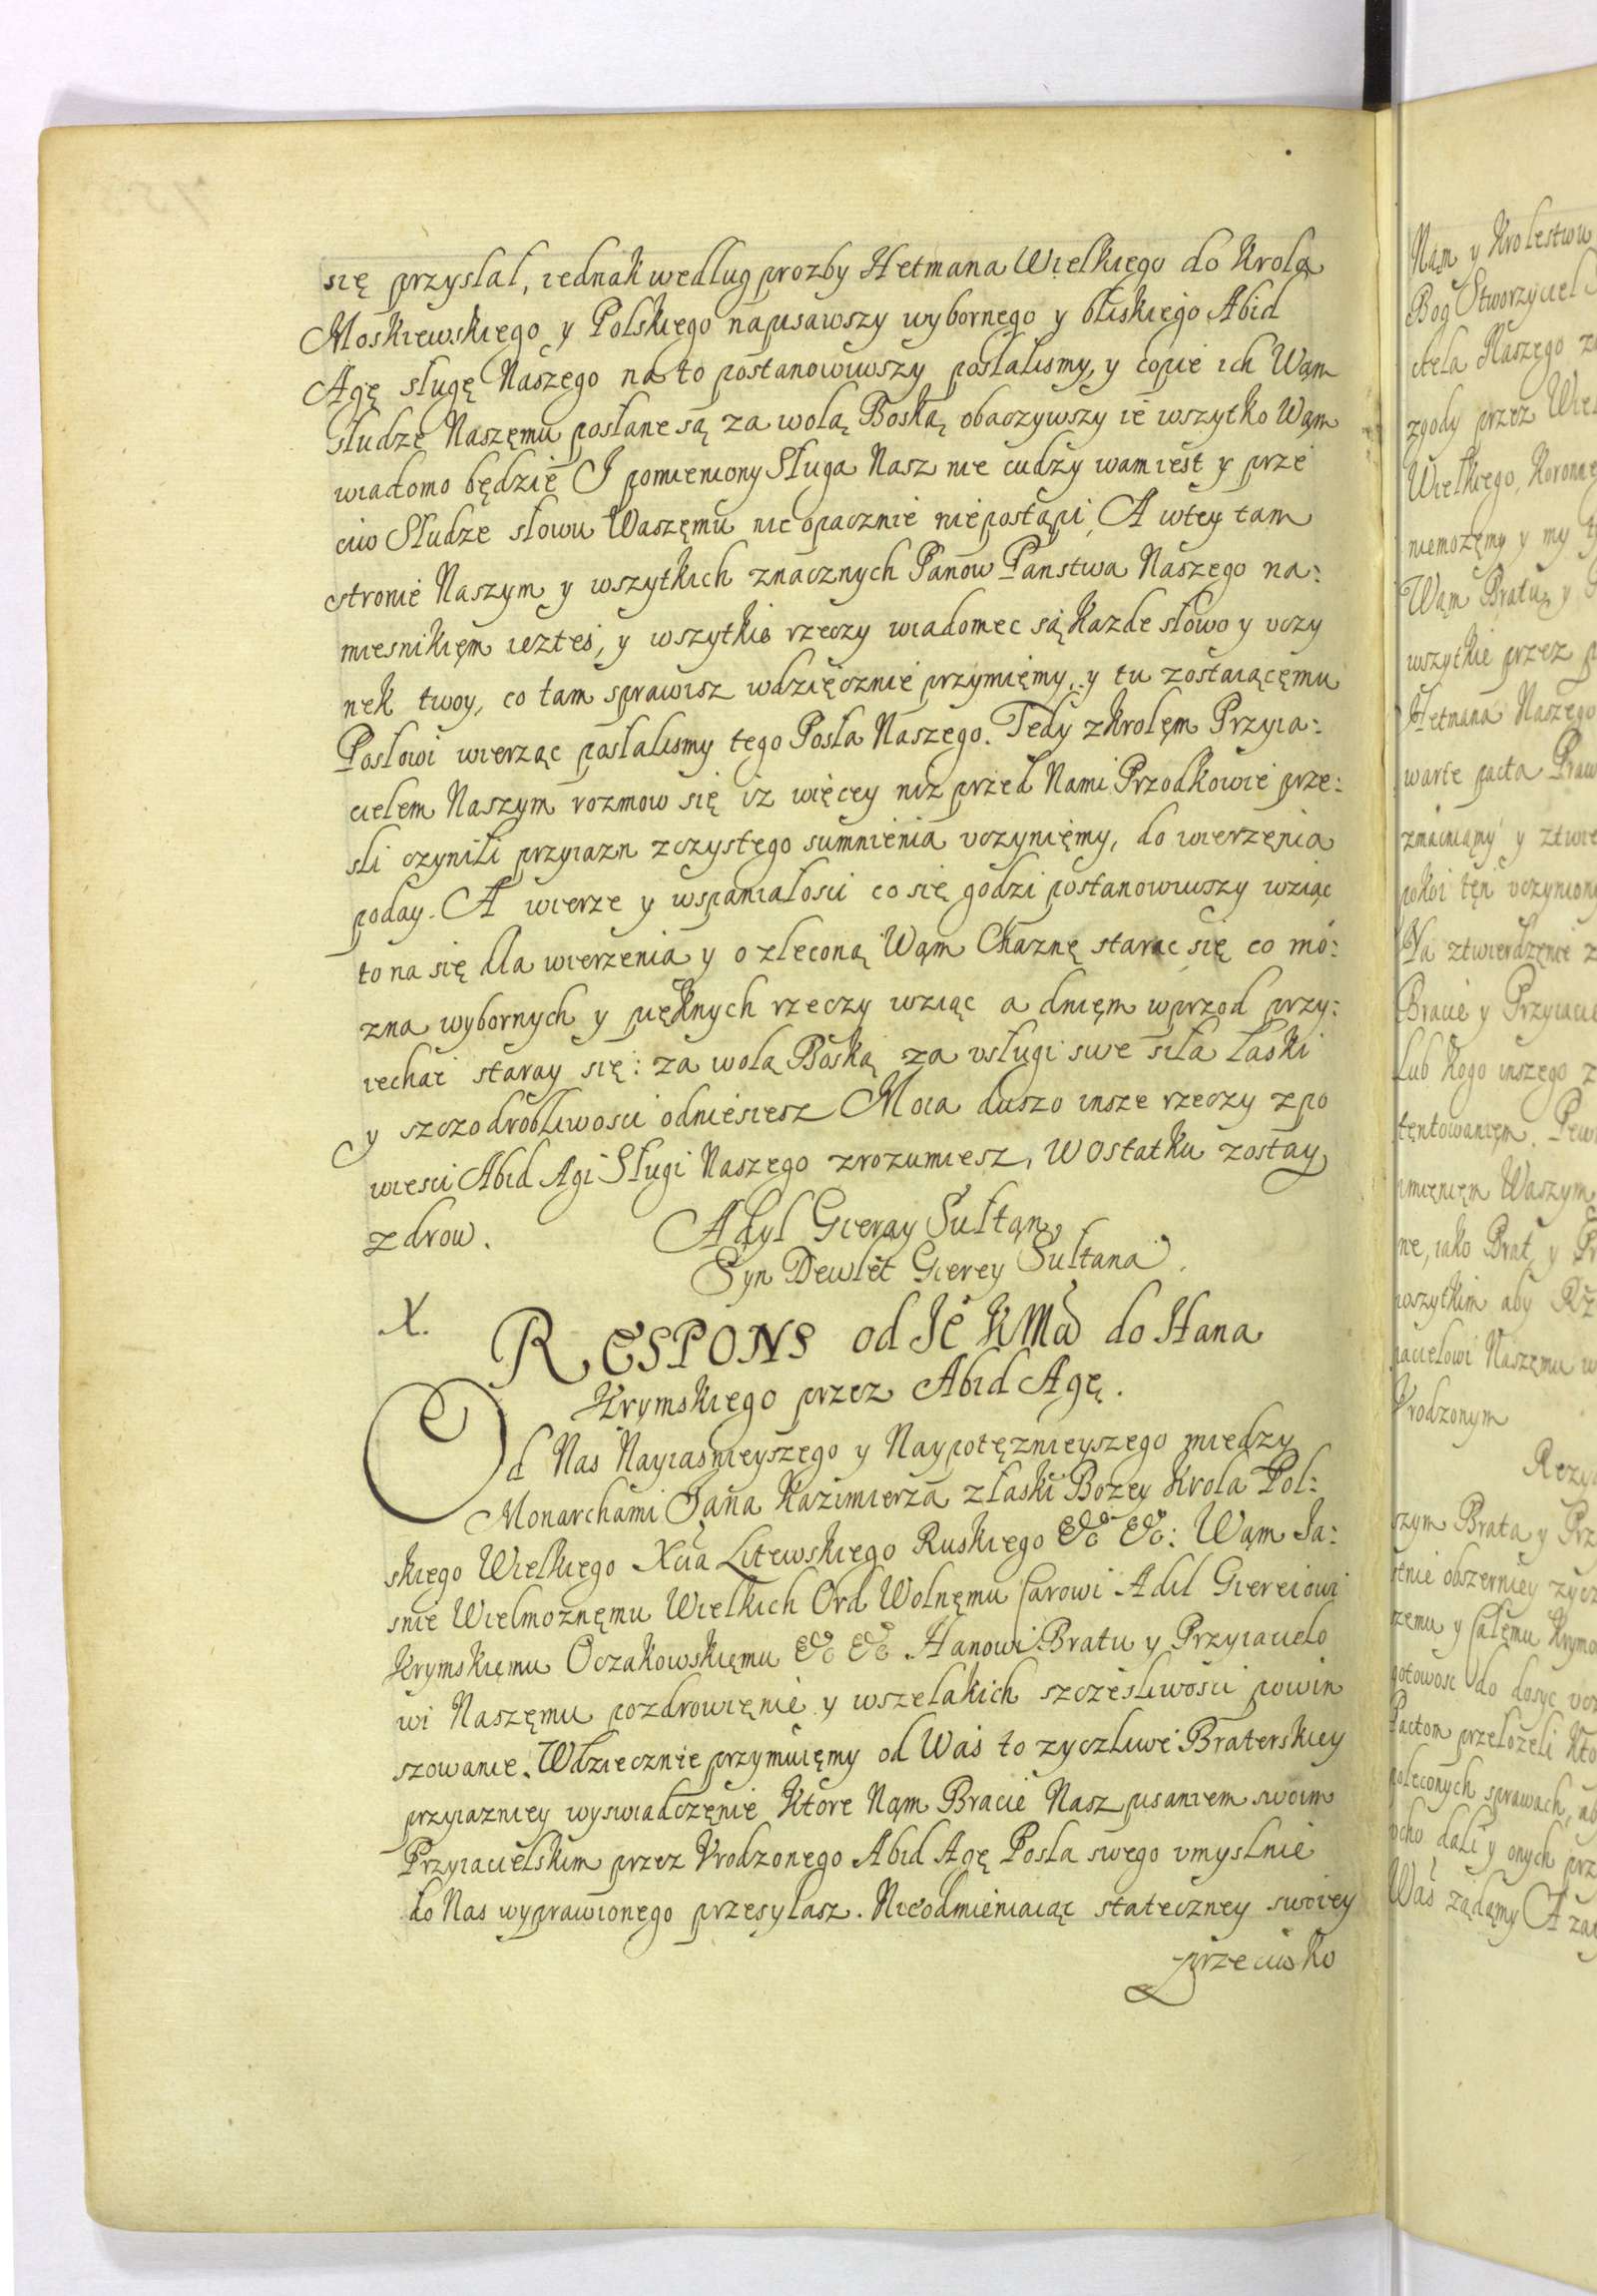 się przyslal, iednak wedlug prozby Hetmana Wielkiego do Krola
Moskiewskiego y Polskiego napisawszy wybornego y bliskiego Abid
Agę sługę Naszego na to postanowiwszy posłalismy, y copie ich Wąm
słudze Naszęmu posłane są za wolą Boską obaczywszy ie wszytko Wąm
wiadomo będzie I pomieniony Sługa Nasz nie cudzy wam iest y prze
ciw Słudze słowu Waszęmu nic opacznie niepostąpi, A wtey tam
stronie Naszym y wszytkich znacznych Panow Panstwa Naszego na:
miesnikięm iezteś, y wszytkie rzeczy wiadomec są każde słowo y vczy
nek twoy, co tam sprawisz wdzięcznie przymięmy, y tu zostaiącęmu
Posłowi wierząc posłalismy tego Posła Naszego. Tedy z Krolęm Przyia:
cielem Naszym rozmow się iz więcey niz przed Nami Przodkowie prze:
sli czynili przyiazn z czystego sumnienia vczynięmy, do wierzęnia
poday. A wierze y wspaniałosci co się godzi postanowiwszy wziąc
to na się dla wierzenia y o zleconą Wąm Chaznę starac się co mo:
zna wybornych y pięknych rzeczy wziąc a dnięm wprzod przy:
iechac staray się: za wolą Boską za vsługi swe siła łaski
y szczodrobliwosci odniesiesz Moia duszo insze rzeczy z po
wiesci Abid Agi Sługi Naszego zrozumiesz, W ostatku zostay
zdrow.
Adyl Gieray Sułtąn
Syn Dewlet Gierey Sułtana.
X.
RESPONS od Je KMci do Hana
Krymskiego przez Abid Agę.
Od Nas Nayiasnieyszego y Naypotęznieyszego miedzy
Monarchami Jana Kazimierza z łaski Bozey Krola Pol:
skiego Wielkiego Xcia Litewskiego Ruskiego &c &c: Wąm Ja:
snie Wielmoznęmu Wielkich Ord Wolnęmu Carowi Adil Giereiowi
Krymskięmu Oczakowskięmu &c &c. Hanowi Bratu y Przyiacielo
wi Naszęmu pozdrowięnie y wszelakich szczęsliwosci powin
szowanie. Wdziecznie przymuięmy od Was to zyczliwe Braterskiey
przyiazniey wyswiadczęnie Ktore Nąm Bracie Nasz pisaniem swoim
Przyiacielskim przez Vrodzonego Abid Agę Posła swego vmyslnie
do Nas wyprawionego przesyłasz. Nieodmieniaiąc stateczney swoiey
przeciwko
Nąm y Krolestwu
Bog Stworzyciel
ciela Naszego
zgody przez
Wielkiego, Koronne
niemozęmy y my
Wąm Bratu y
wszytkie przez
Hetmana Naszego
warte pacta
zmacniąmy y
pokoi tęn vczyniony
Na ztwierdzęnie
Bracie y Przyiacie
Lub Kogo inszego
tęntowanięm.
imięnięm Waszym
ne, iako Brat y
wszytkim aby
iacielowi Naszęmu
Vrodzonym
szym Brata y
stnie obszerniey
zemu y Całęmu
gotowosc do dosyc
Pactom przełozeli
poleconych sprawach,
dali y onych
Was ządąmy A